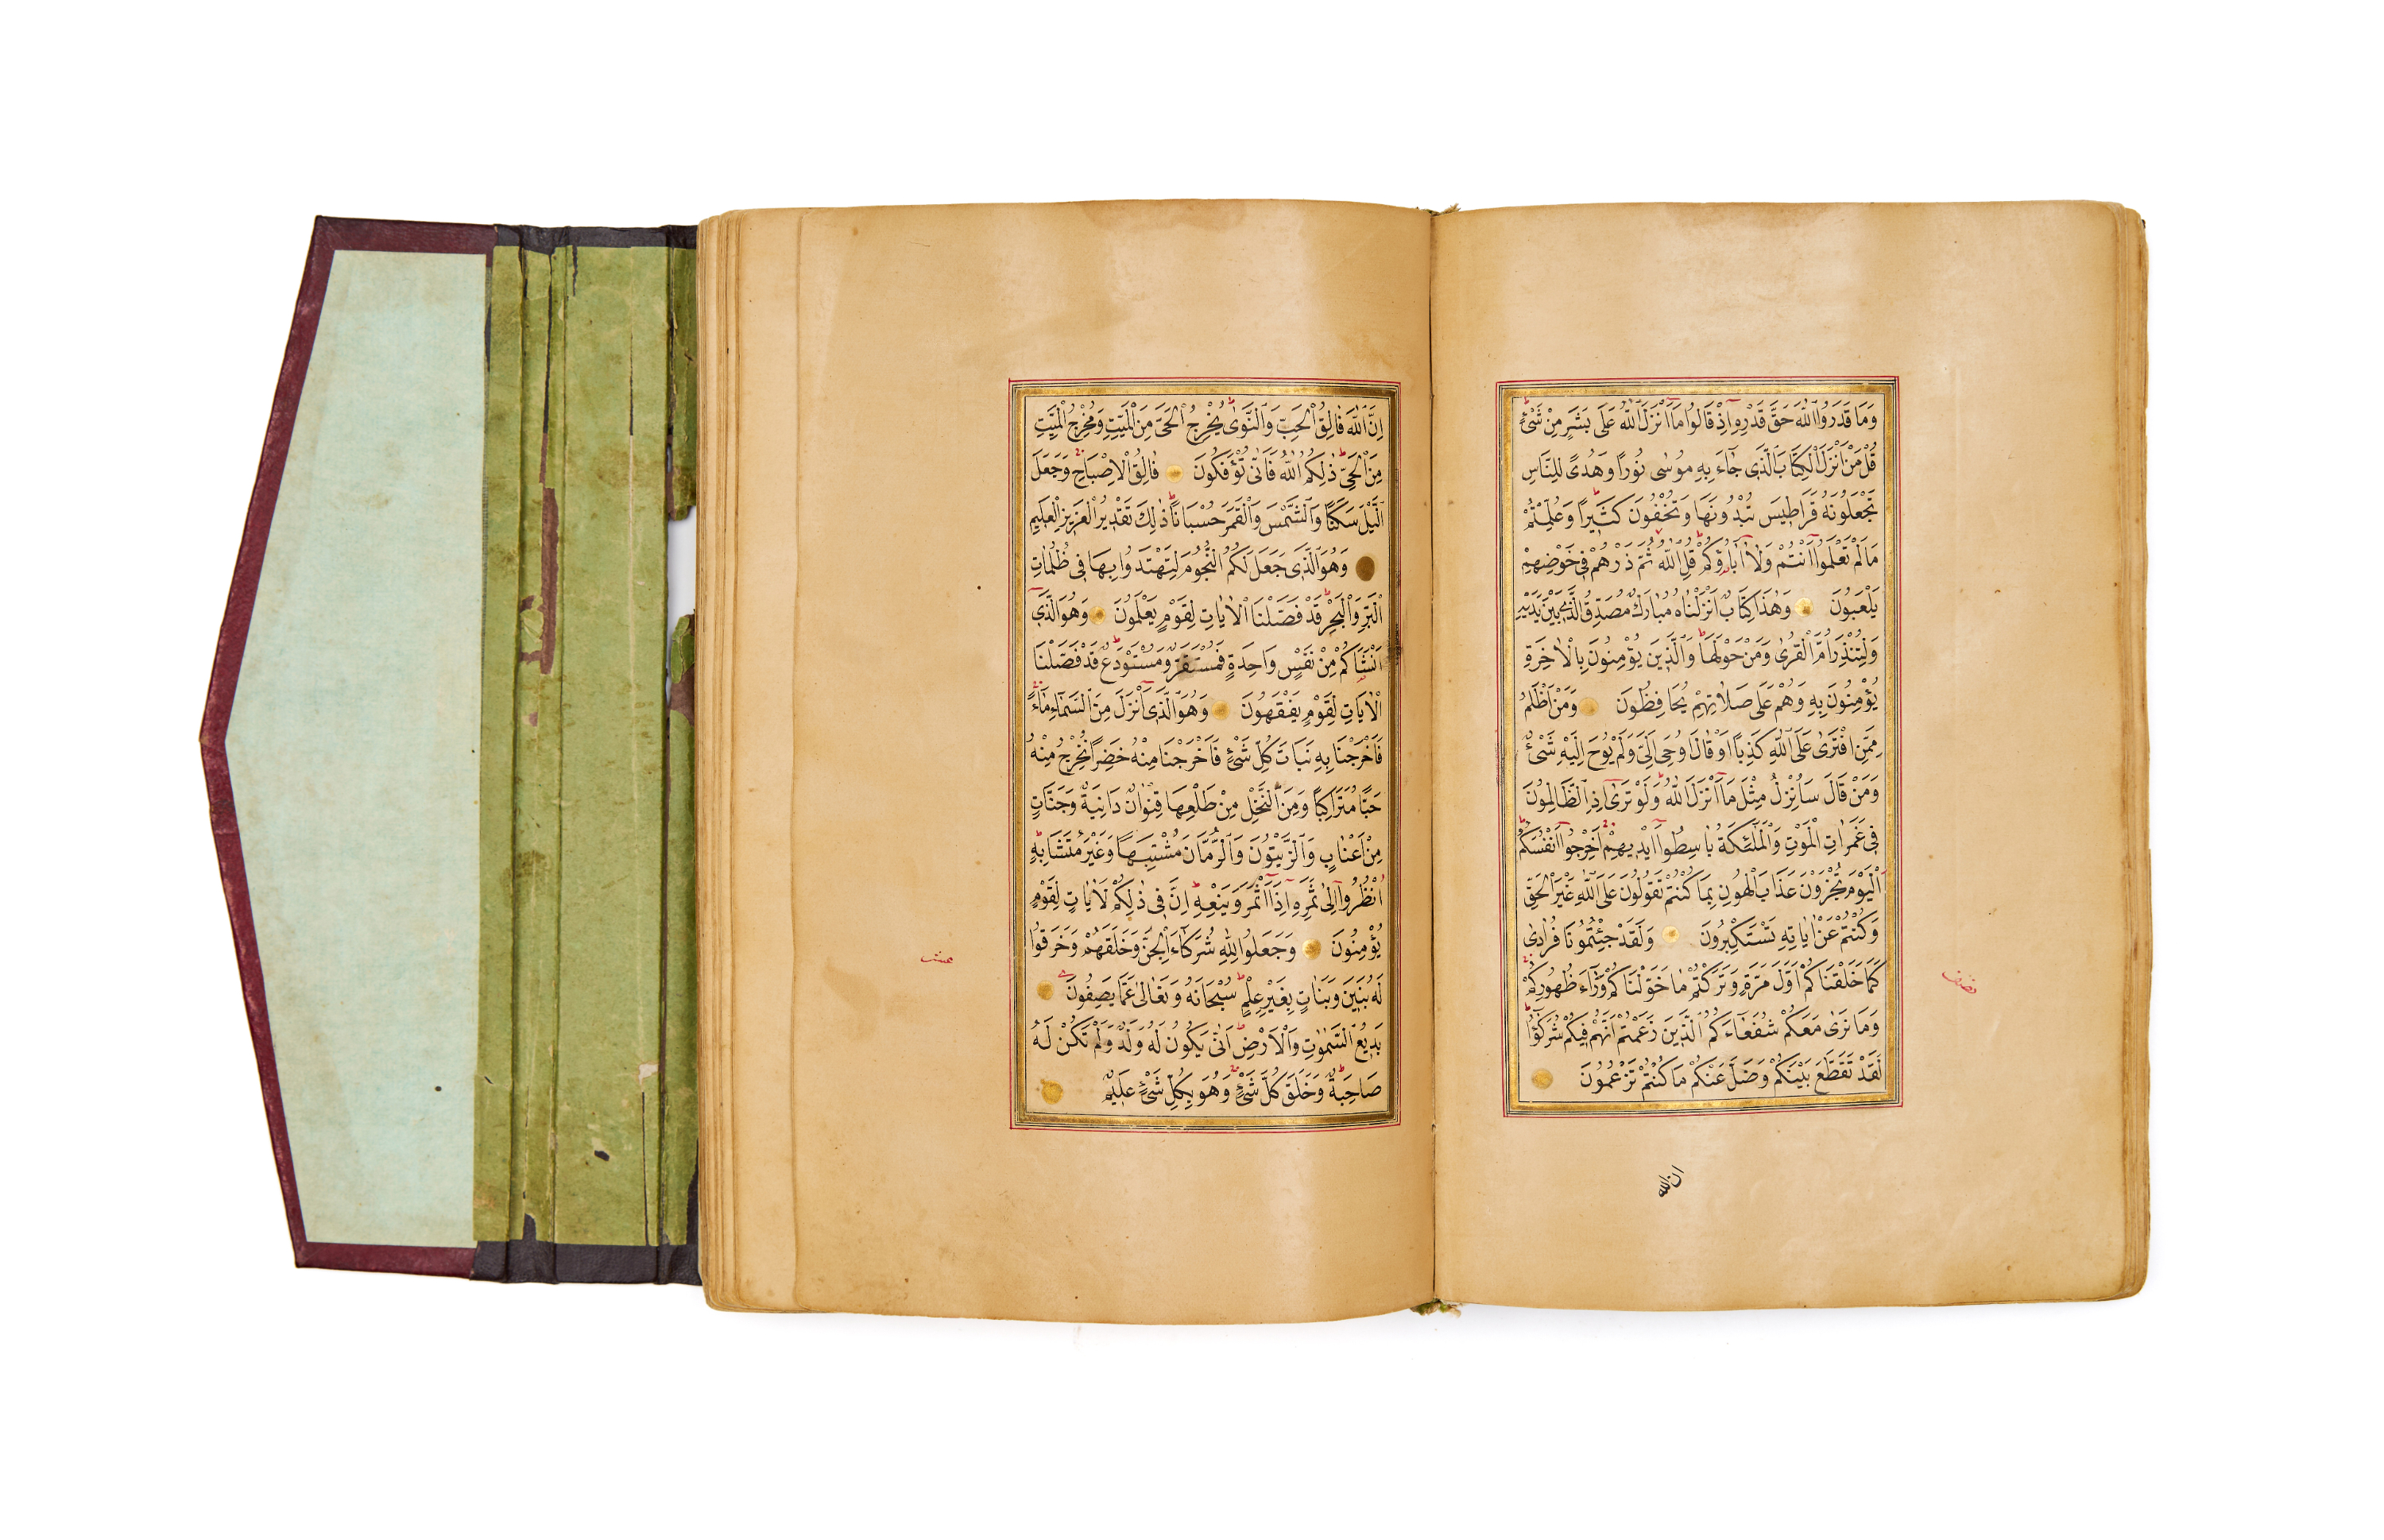 وَمَا قَدَرُوا اللّٰهَ حَقَّ قَدْرِهٖ اِذْ قَالُوا مَا اَنْزَلَ اللّٰهُ عَلٰى بَشَرٍ مِنْ شَىْءٍ
قُلْ مَنْ اَنْزَلَ الْكِتَابَ الَّذٖى جَاءَ بِهٖ مُوسٰى نُورًا وَهُدًى لِلنَّاسِ
تَجْعَلُونَهُ قَرَاطٖيسَ تُبْدُونَهَا وَتُخْفُونَ كَثٖيرًا وَعُلِّمْتُمْ
مَا لَمْ تَعْلَمُوا اَنْتُمْ وَلَا اٰبَاؤُكُمْ قُلِ اللّٰهُ ثُمَّ ذَرْهُمْ فٖى خَوْضِهِمْ
يَلْعَبُونَ وَهٰذَا كِتَابٌ اَنْزَلْنَاهُ مُبَارَكٌ مُصَدِّقُ الَّذٖى بَيْنَ يَدَيْهِ
وَلِتُنْذِرَ اُمَّ الْقُرٰى وَمَنْ حَوْلَهَا وَالَّذٖينَ يُؤْمِنُونَ بِالْاٰخِرَةِ
يُؤْمِنُونَ بِهٖ وَهُمْ عَلٰى صَلَاتِهِمْ يُحَافِظُونَ وَمَنْ اَظْلَمُ
مِمَّنِ افْتَرٰى عَلَى اللّٰهِ كَذِبًا اَوْ قَالَ اُوحِىَ اِلَىَّ وَلَمْ يُوحَ اِلَيْهِ شَىْءٌ
وَمَنْ قَالَ سَاُنْزِلُ مِثْلَ مَا اَنْزَلَ اللّٰهُ وَلَوْ تَرٰى اِذِ الظَّالِمُونَ
فٖى غَمَرَاتِ الْمَوْتِ وَالْمَلٰئِكَةُ بَاسِطُوا اَيْدٖيهِمْ اَخْرِجُوا اَنْفُسَكُمْ
اَلْيَوْمَ تُجْزَوْنَ عَذَابَ الْهُونِ بِمَا كُنْتُمْ تَقُولُونَ عَلَى اللّٰهِ غَيْرَ الْحَقِّ
وَكُنْتُمْ عَنْ اٰيَاتِهٖ تَسْتَكْبِرُونَ وَلَقَدْ جِئْتُمُونَا فُرَادٰى
كَمَا خَلَقْنَاكُمْ اَوَّلَ مَرَّةٍ وَتَرَكْتُمْ مَا خَوَّلْنَاكُمْ وَرَاءَ ظُهُورِكُمْ
وَمَا نَرٰى مَعَكُمْ شُفَعَاءَكُمُ الَّذٖينَ زَعَمْتُمْ اَنَّهُمْ فٖيكُمْ شُرَكٰؤُا
لَقَدْ تَقَطَّعَ بَيْنَكُمْ وَضَلَّ عَنْكُمْ مَا كُنْتُمْ تَزْعُمُونَ
نصف
ان الله
اِنَّ اللّٰهَ فَالِقُ الْحَبِّ وَالنَّوٰى يُخْرِجُ الْحَىَّ مِنَ الْمَيِّتِ وَمُخْرِجُ الْمَيِّتِ
مِنَ الْحَىِّ ذٰلِكُمُ اللّٰهُ فَاَنّٰى تُؤْفَكُونَ فَالِقُ الْاِصْبَاحِ وَجَعَلَ
الَّيْلَ سَكَنًا وَالشَّمْسَ وَالْقَمَرَ حُسْبَانًا ذٰلِكَ تَقْدٖيرُ الْعَزٖيزِ الْعَلٖيمِ
وَهُوَ الَّذٖى جَعَلَ لَكُمُ النُّجُومَ لِتَهْتَدُوا بِهَا فٖى ظُلُمَاتِ
الْبَرِّ وَالْبَحْرِ قَدْ فَصَّلْنَا الْاٰيَاتِ لِقَوْمٍ يَعْلَمُونَ وَهُوَ الَّذٖى
اَنْشَاَكُمْ مِنْ نَفْسٍ وَاحِدَةٍ فَمُسْتَقَرٌّ وَمُسْتَوْدَعٌ قَدْ فَصَّلْنَا
الْاٰيَاتِ لِقَوْمٍ يَفْقَهُونَ وَهُوَ الَّذٖى اَنْزَلَ مِنَ السَّمَاءِ مَاءً
فَاَخْرَجْنَا بِهٖ نَبَاتَ كُلِّ شَىْءٍ فَاَخْرَجْنَا مِنْهُ خَضِرًا نُخْرِجُ مِنْهُ
حَبًّا مُتَرَاكِبًا وَمِنَ النَّخْلِ مِنْ طَلْعِهَا قِنْوَانٌ دَانِيَةٌ وَجَنَّاتٍ
مِنْ اَعْنَابٍ وَالزَّيْتُونَ وَالرُّمَّانَ مُشْتَبِهًا وَغَيْرَ مُتَشَابِهٍ
اُنْظُرُوا اِلٰى ثَمَرِهٖ اِذَا اَثْمَرَ وَيَنْعِهٖ اِنَّ فٖى ذٰلِكُمْ لَاٰيَاتٍ لِقَوْمٍ
يُؤْمِنُونَ وَجَعَلُوا لِلّٰهِ شُرَكَاءَ الْجِنَّ وَخَلَقَهُمْ وَخَرَقُوا
لَهُ بَنٖينَ وَبَنَاتٍ بِغَيْرِ عِلْمٍ سُبْحَانَهُ وَتَعَالٰى عَمَّا يَصِفُونَ
بَدٖيعُ السَّمٰوَاتِ وَالْاَرْضِ اَنّٰى يَكُونُ لَهُ وَلَدٌ وَلَمْ تَكُنْ لَهُ
صَاحِبَةٌ وَخَلَقَ كُلَّ شَىْءٍ وَهُوَ بِكُلِّ شَىْءٍ عَلٖيمٌ
عشر